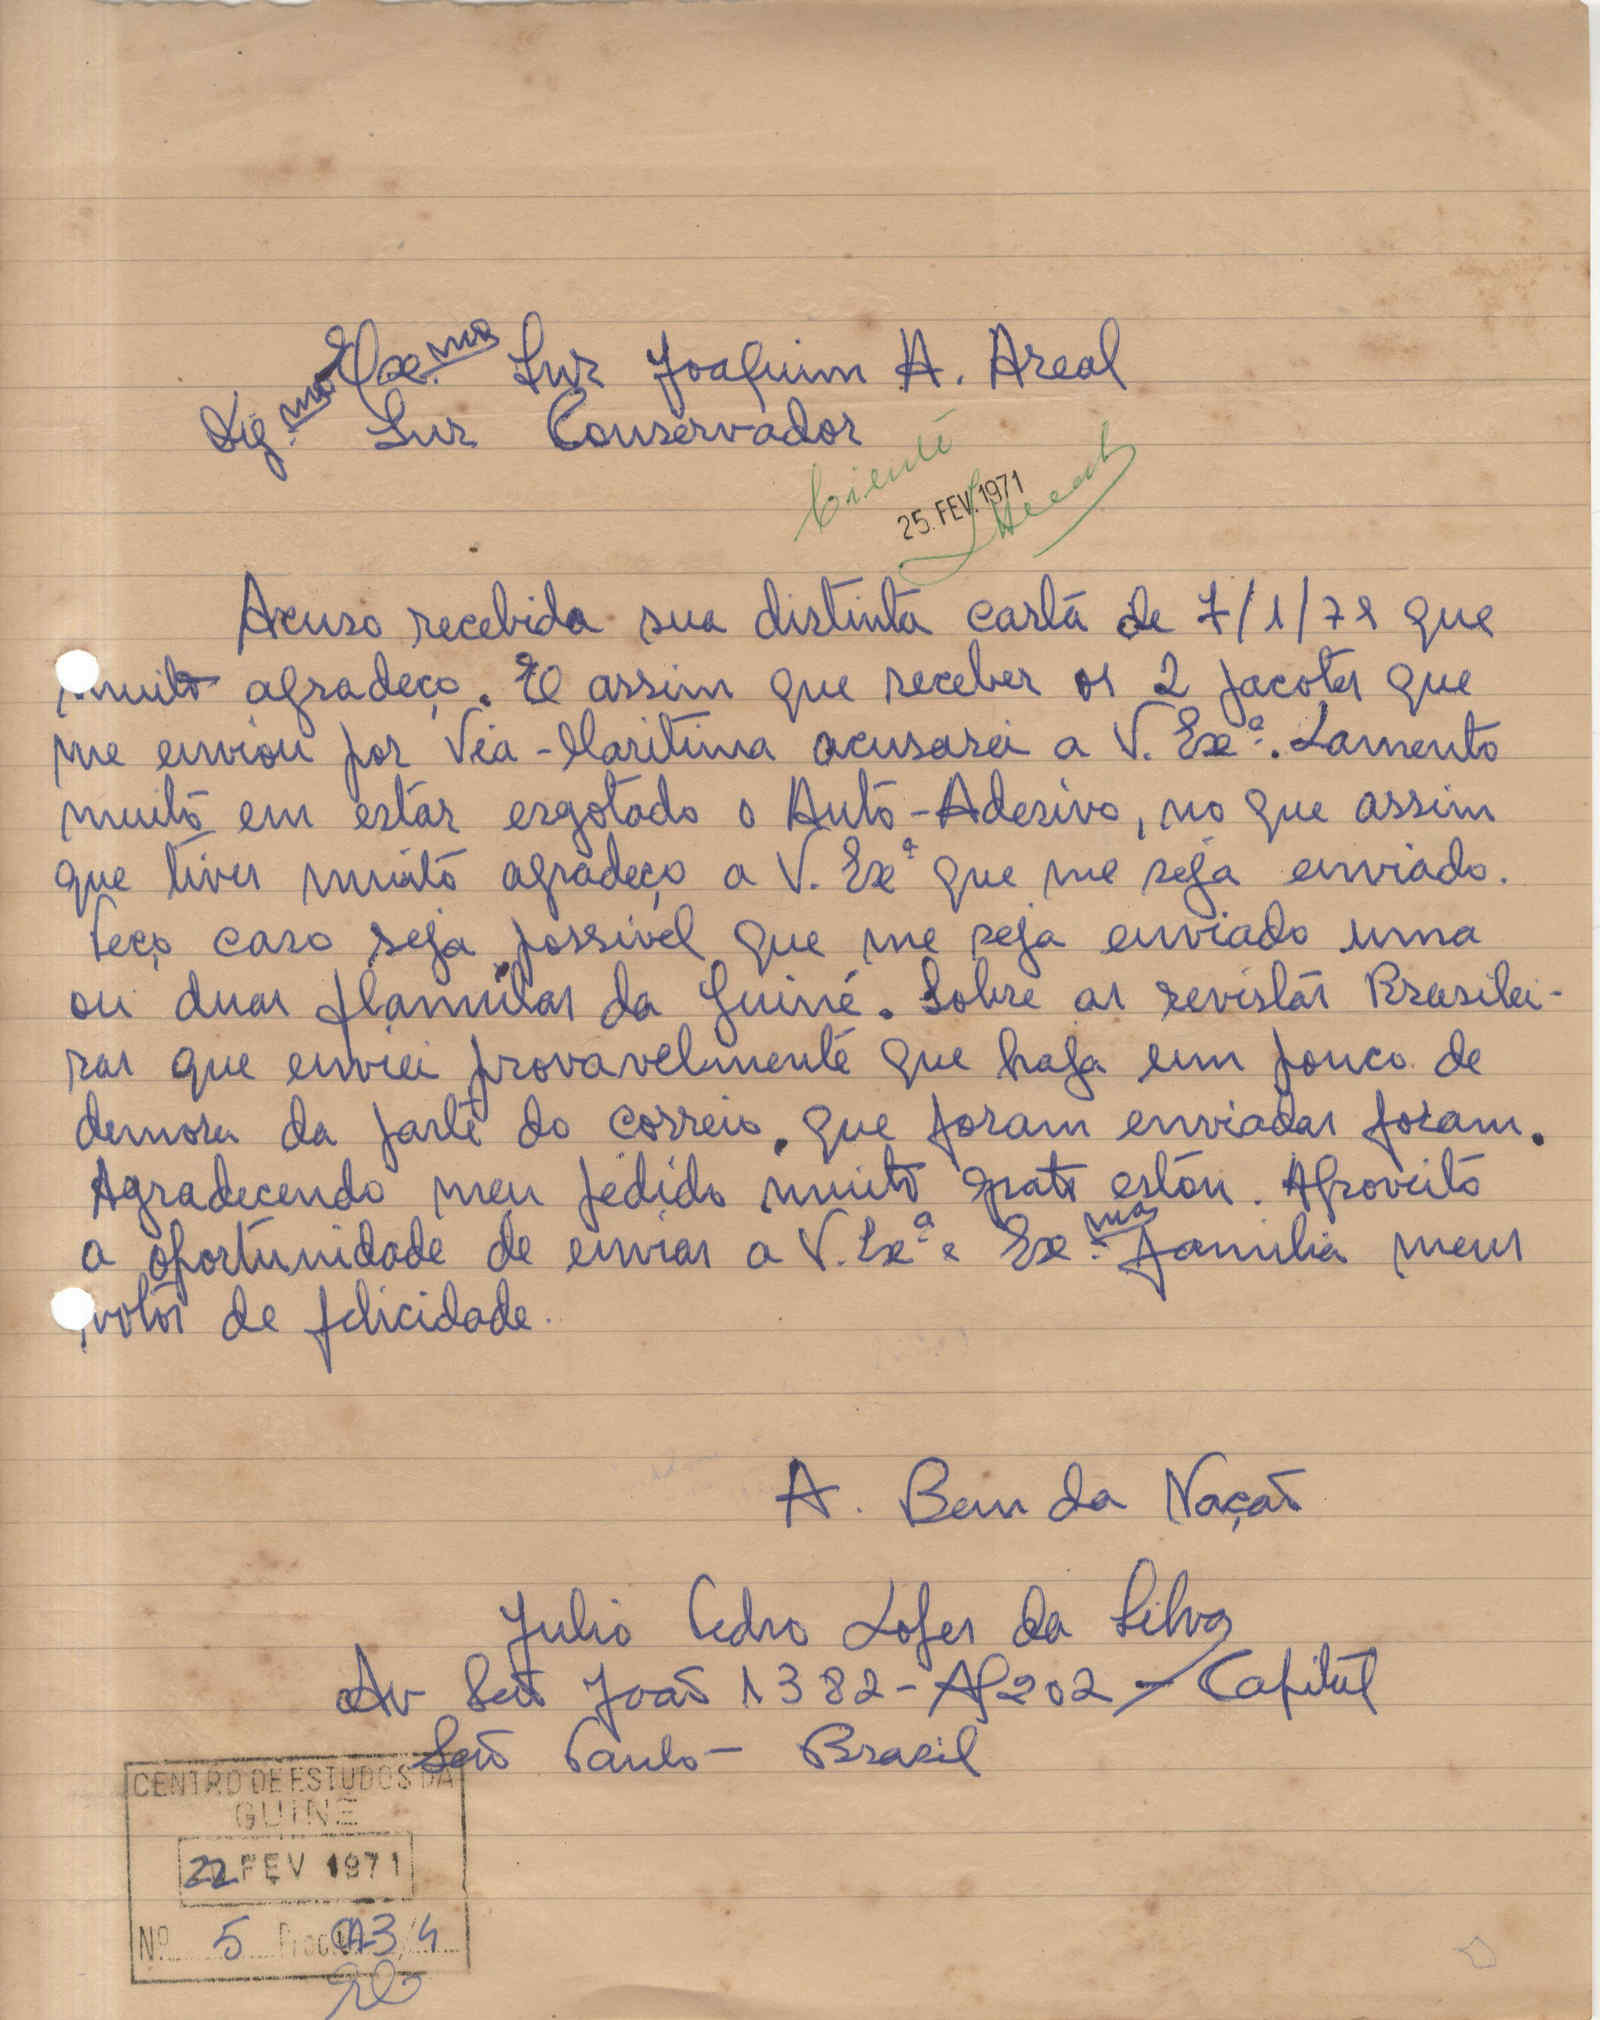 Exe.mo Snr Joaquim A. Areal
Dig.mo Snr Conservador
Ciente
25. FEV. 1971
Acuso recebida sua distinta carta de 7/1/71 que
muito agradeço. E assim que receber os 2 pacotes que
me enviou por Via-Maritima acusarei a V. Exª. Lamento
muito em estar esgotado o Auto-Adesivo, no que assim
que tiver muito agradeço a V. Exª que me seja enviado.
Peço caso seja possivel que me seja enviado uma
ou duas flamulas da Guiné. Sobre as revistas Brasilei-
ras que enviei provavelmente que haja um pouco de
demora da parte do correio. que foram enviadas foram.
Agradecendo meu pedido muito grato estou. Aproveito
a oportunidade de enviar a V. Exª e Ex.ma familia meus
votos de felicidade.
A. Bem da Nação
Julio Pedro Lopes da Silva
Av São João 1382-Ap202-Capital
São Paulo - Brasil
CENTRO DE ESTUDOS DA
GUINÉ
22 FEV 1971
Nº 5 Proc. CA3/4